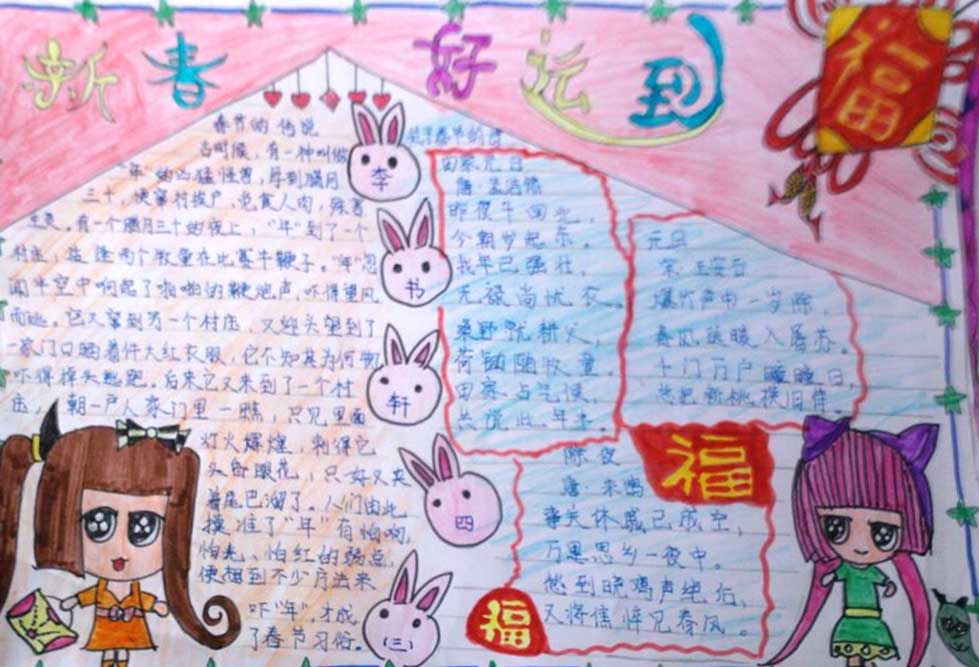 新春好运到
福
春节的传说
古时候，有一种叫做
“年”的凶猛怪兽，每到腊月
三十，便窜村挨户，觅食人肉，残害
生灵。有一个腊月三十的夜上，“年”到了一个
村庄，适逢两个牧童在比赛牛鞭子。“年”忽
闻半空中响起了啪啪的鞭炮声，吓得望风
而逃。它又窜到另一个村庄，又迎头望到了
一家门口晒着件大红衣服，它不知其为何物，
吓得掉头逃跑。后来它又来到了一个村
庄，朝一户人家门里一瞧，只见里面
灯火辉煌，刺得它
头昏眼花，只好又夹
着尾巴溜了。人们由此
摸准了“年”有怕响，
怕光，怕红的弱点，
便想到不少方法来
吓“年”，才成
了春节习俗。
李
书
轩
四
(三)
关于春节的诗
田家元日
唐·孟浩然
昨夜斗回北，
今朝岁起东。
我年已强壮，
无禄尚忧农。
桑野就耕父，
荷锄随牧童。
田家占气候，
共说此年丰。
元日
宋·王安石
爆竹声中一岁除，
春风送暖入屠苏。
千门万户曈曈日，
总把新桃换旧符。
福
除夜
唐·来鹄
事关休戚已成空，
万里思乡一夜中。
愁到晓鸡声绝后，
又将憔悴见春风。
福